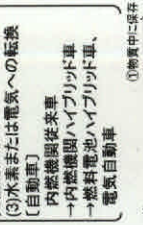 (3)水素または電気への転換
〔自動車〕
内燃機関従来車
→内燃機関ハイブリッド車
→燃料電池ハイブリッド車、
電気自動車
①物質中に保存